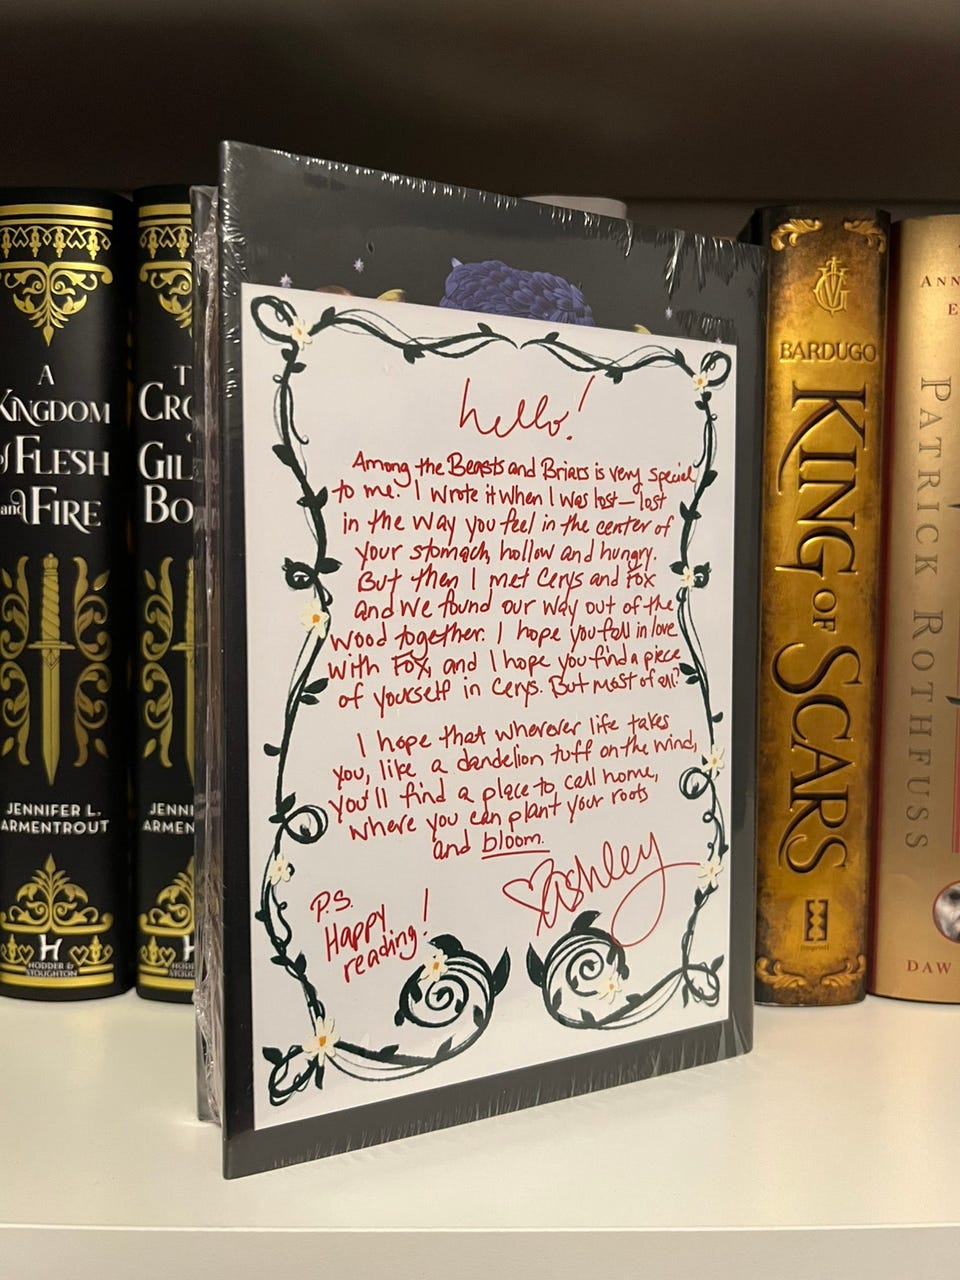 A
KINGDOM
of FLESH
and FIRE
JENNIFER L.
ARMENTROUT
H
HODDER &
STOUGHTON
T
CRO
GIL
BO
JENNI
ARMEN
hello!
Among the Beasts and Briars is very special
to me. I wrote it when I was lost—lost
in the way you feel in the center of
your stomach, hollow and hungry.
But then I met Cerys and Fox
and we found our way out of the
wood together. I hope you fall in love
with Fox, and I hope you find a piece
of yourself in Cerys. But most of all?
I hope that wherever life takes
you, like a dandelion tuff on the wind,
you'll find a place to call home,
where you can plant your roots
and bloom.
Ashley
P.S.
Happy
reading!
BARDUGO
KING OF SCARS
[Imprint]
ANN
E
PATRICK ROTHFUSS
DAW